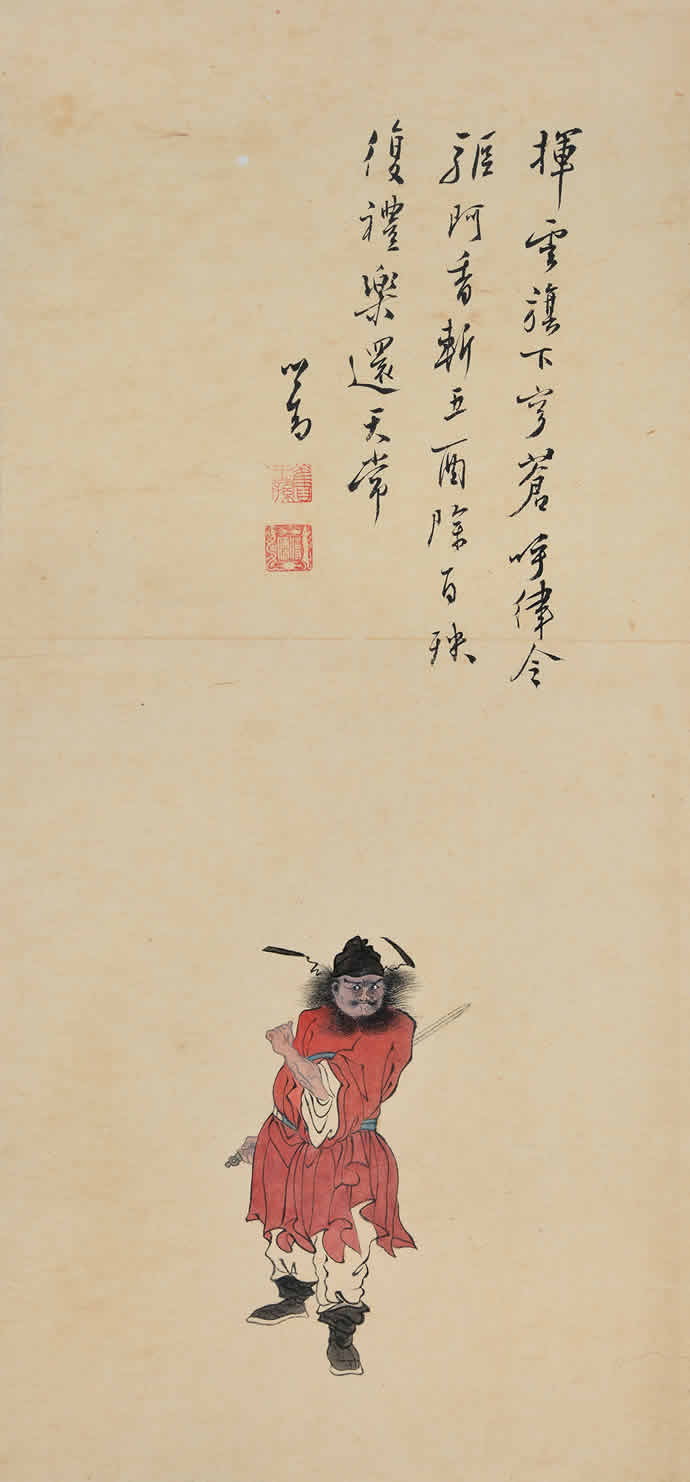 揮雲旗下穹蒼呼律令
驅阿香斬五酉除百殃
復禮樂還天常
心畬
舊王孫